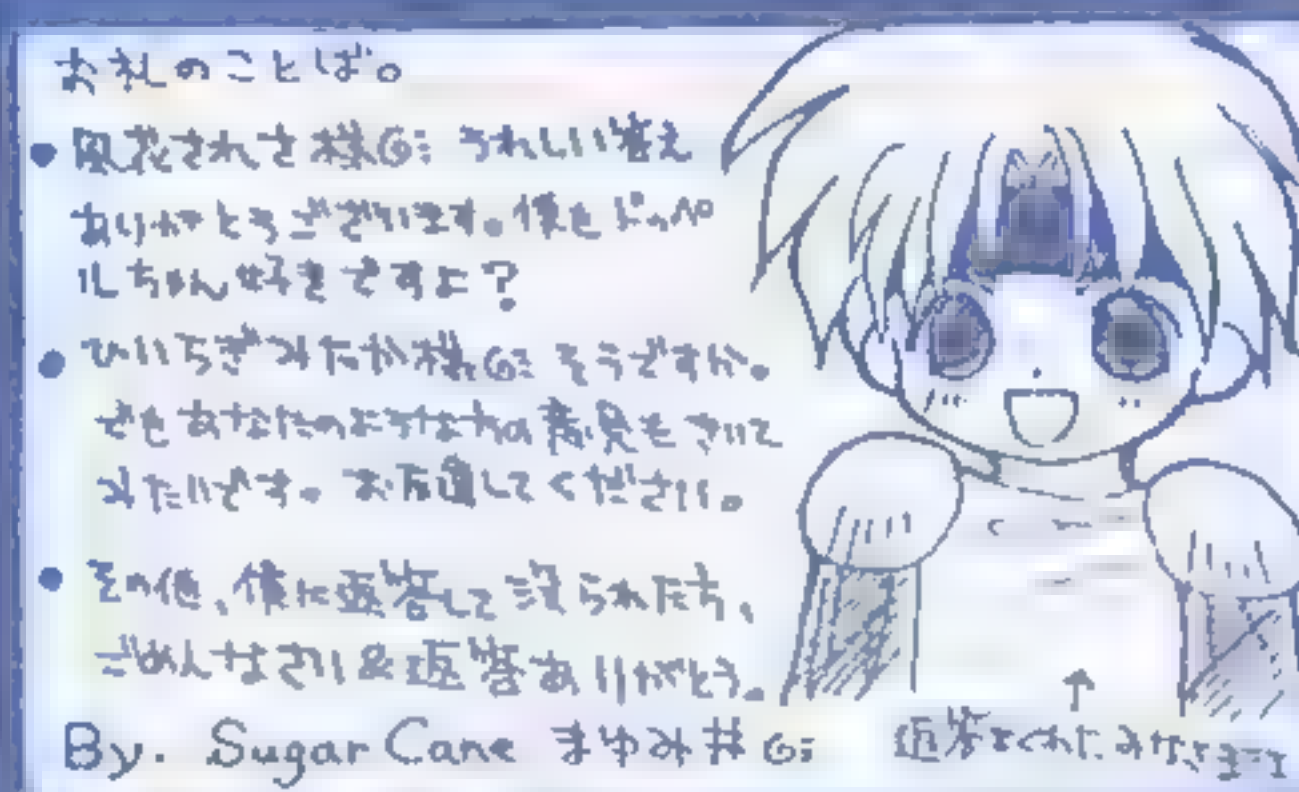 お礼のことば。
● 風花されさ様G: うれしい答え
ありがとうございます。僕もドッペ
ルちゃん好きですよ?
● ひいらぎみたか様G: そうですか。
でもあなたのような方の意見もきいて
みたいです。お万進してください。
● その他、僕に返答して没られた方、
ごめんなさい&返答ありがとう。
By. Sugar Cane まゆみ# G:
↑
返答をくれたみなさま